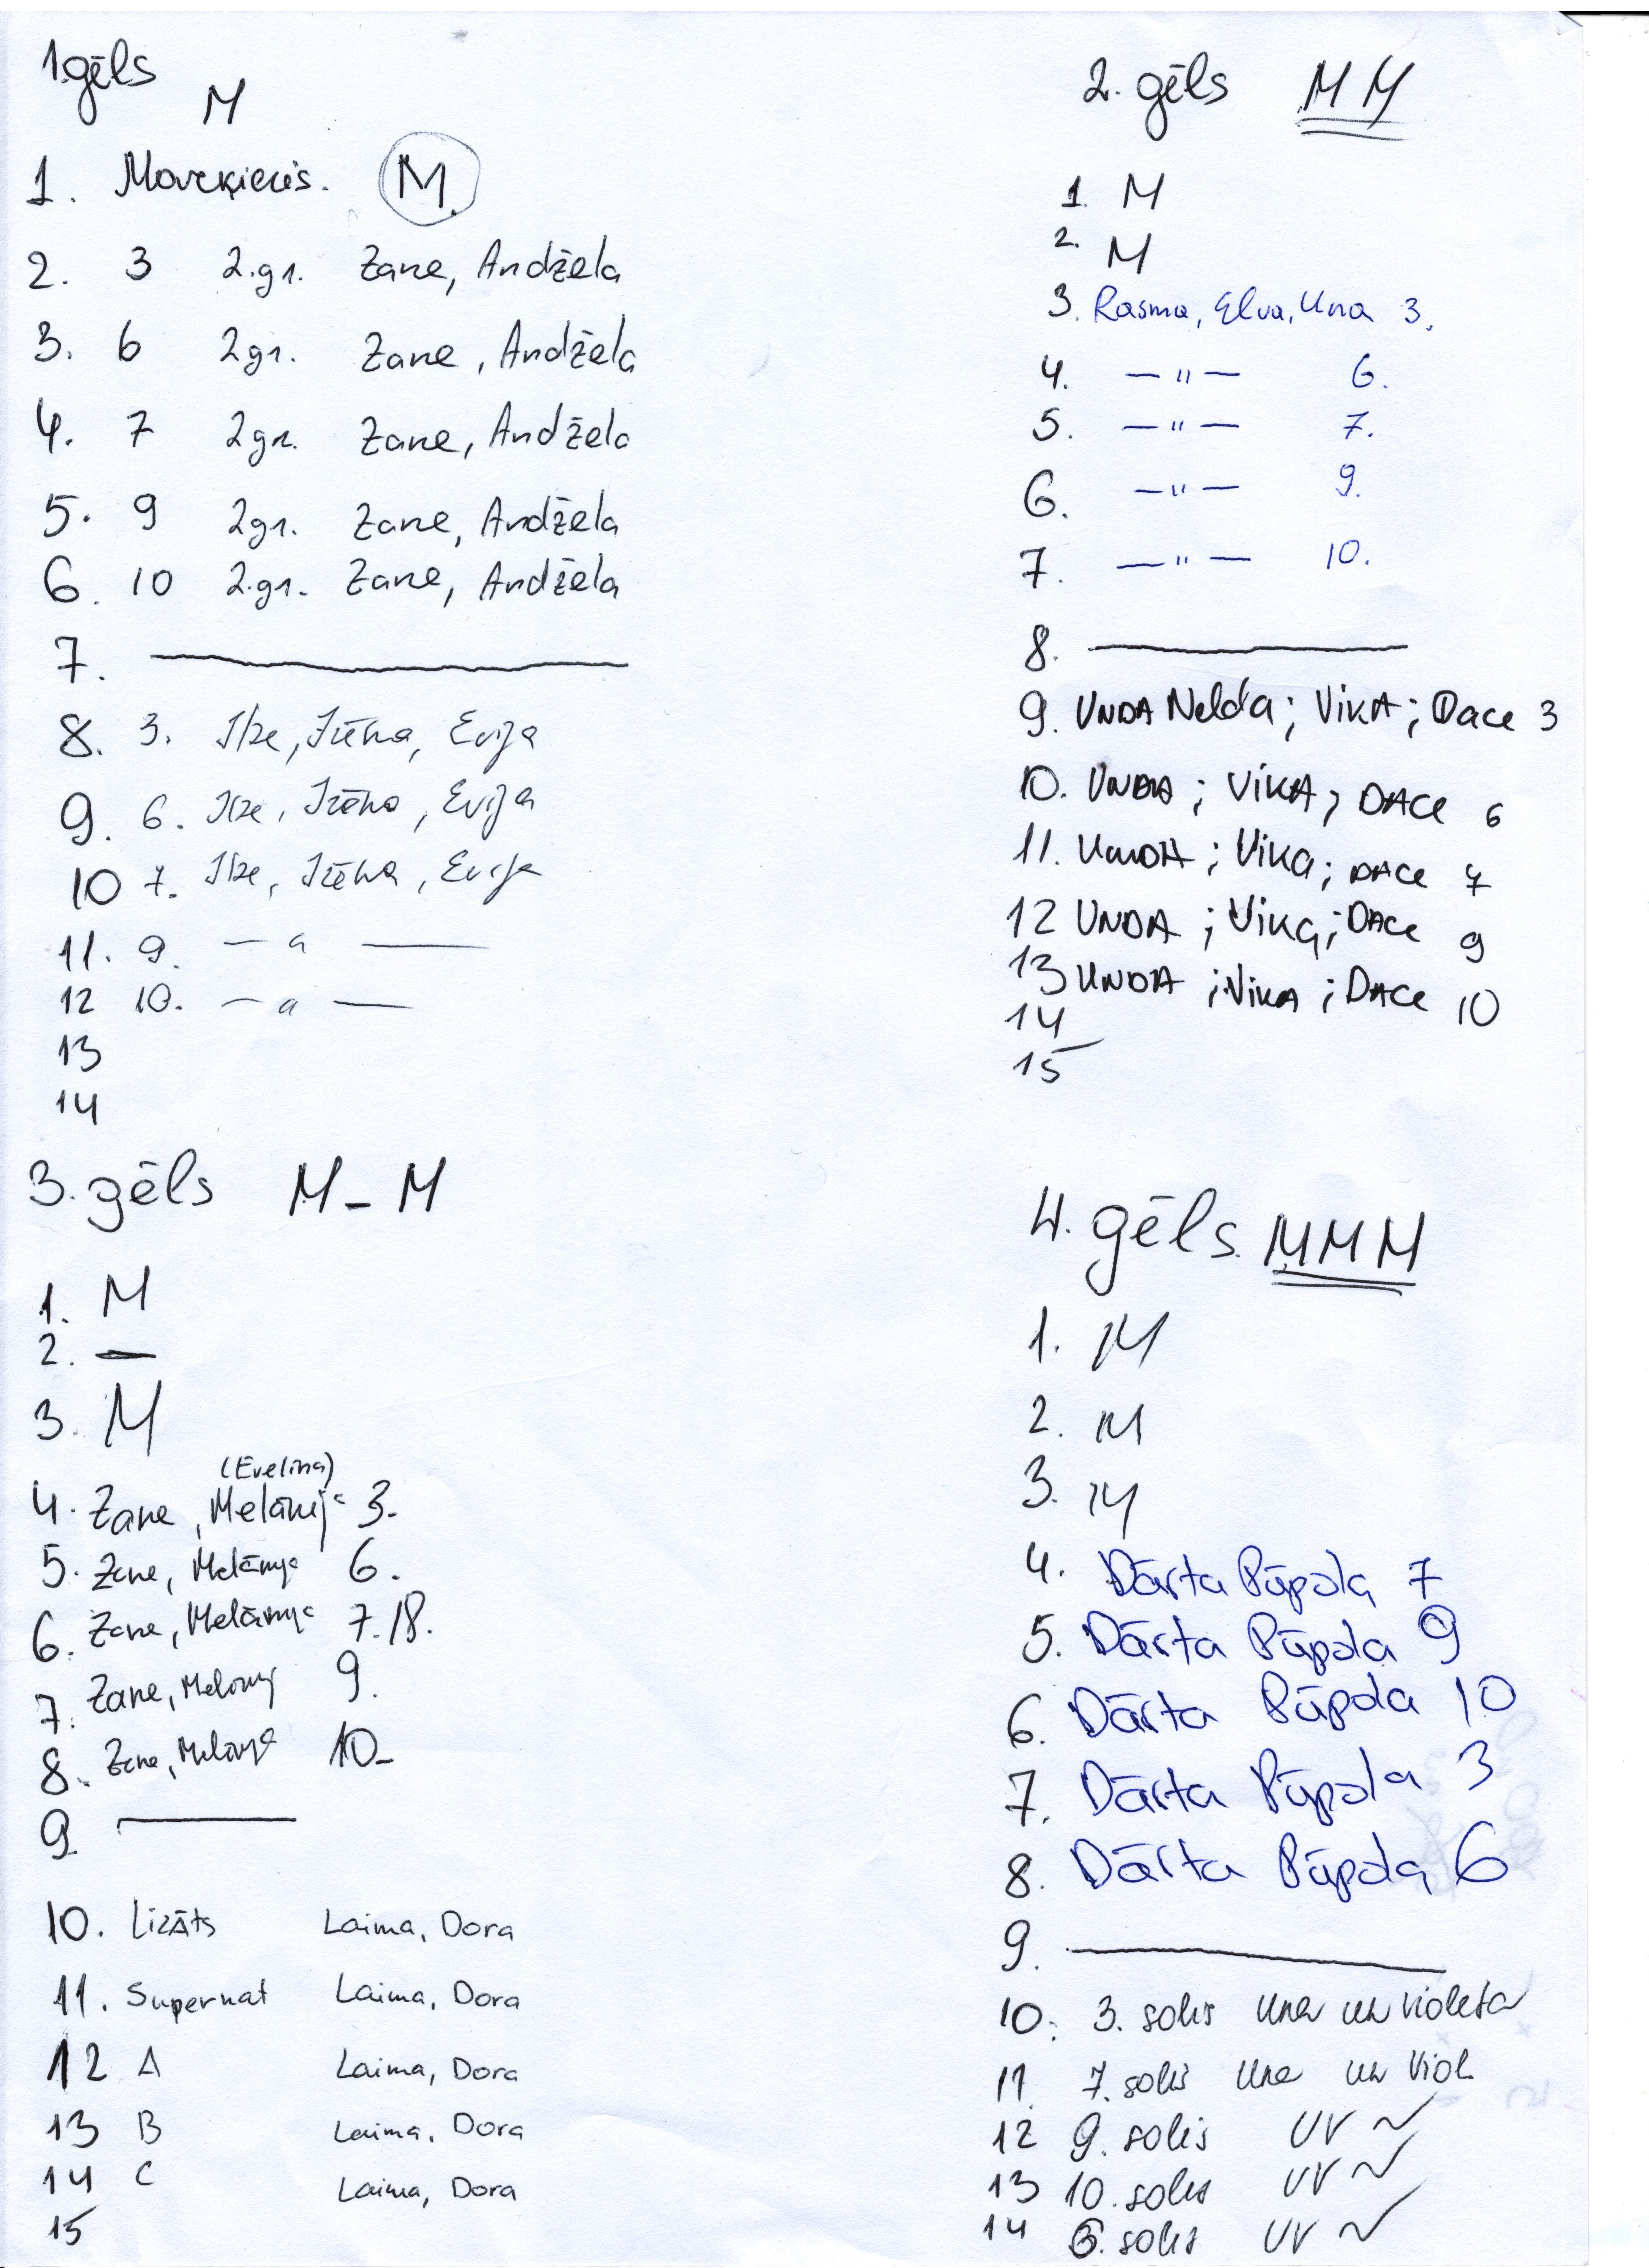 1.gēls
M
1. Marķieris. M.
2. 3 2.gr. Zane, Andžela
3. 6 2gr. Zane, Andžela
4. 7 2gr. Zane, Andžela
5. 9 2gr. Zane, Andžela
6. 10 2.gr. Zane, Andžela
7. ———
8. 3. Ilze, Irēna, Evija
9. 6. Ilze, Irēna, Evija
10 7. Ilze, Irēna, Evija
11. 9. — " ———
12 10. — " —
13
14
2. gēls MM
1. M
2. M
3. Rasma, Elva, Una 3.
4. — " — 6.
5. — " — 7.
6. — " — 9.
7. — " — 10.
8. ———
9. UNDA Nelda; VIKA; Dace 3
10. UNDA; VIKA; DACE 6
11. UNDA; Vika; DACE 7
12 UNDA; Vika; DACE 9
13 UNDA; Vika; DACE 10
14
15
3. gēls M – M
1. M
2. —
3. M
(Evelīna)
4. Zane, Melānija 3.
5. Zane, Melānija 6.
6. Zane, Melānija 7./8.
7. Zane, Melānij 9.
8. Zane, Melānija 10-
9. ———
10. Lizāts Laima, Dora
11. Supernat Laima, Dora
12 A Laima, Dora
13 B Laima, Dora
14 C Laima, Dora
15
4. gēls. MMM
1. M
2. M
3. M
4. Dārta Pūpola 7
5. Dārta Pūpola 9
6. Dārta Pūpola 10
7. Dārta Pūpola 3
8. Dārta Pūpola 6
9. ———
10. 3. solis Una un Violeta
11. 7. solis Una un Viol
12 9. solis UV ~
13 10. solis UV ~
14 6. solis UV ~